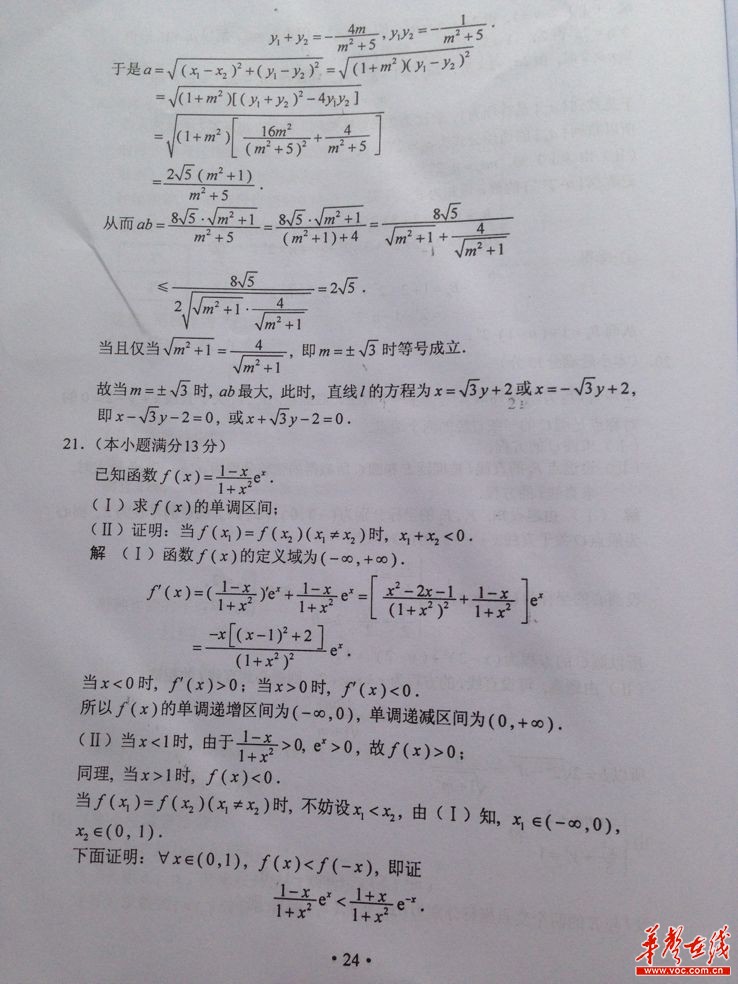 y₁ + y₂ = -4m/(m²+5), y₁y₂ = -1/(m²+5).
于是a = √((x₁-x₂)²+(y₁-y₂)²) = √((1+m²)(y₁-y₂)²)
= √((1+m²)[(y₁+y₂)²-4y₁y₂])
= √((1+m²)[16m²/(m²+5)² + 4/(m²+5)])
= 2√5(m²+1)/(m²+5).
从而ab = 8√5·√(m²+1)/(m²+5) = 8√5·√(m²+1)/((m²+1)+4) = 8√5/(√(m²+1) + 4/√(m²+1))
≤ 8√5/(2√(√(m²+1)·4/√(m²+1))) = 2√5.
当且仅当√(m²+1) = 4/√(m²+1), 即m=±√3时等号成立.
故当m=±√3时, ab最大, 此时, 直线l的方程为x=√3y+2或x=-√3y+2,
即x-√3y-2=0, 或x+√3y-2=0.
21.(本小题满分13分)
已知函数f(x) = (1-x)/(1+x²)eˣ.
(Ⅰ)求f(x)的单调区间;
(Ⅱ)证明: 当f(x₁)=f(x₂)(x₁≠x₂)时, x₁+x₂<0.
解 (Ⅰ)函数f(x)的定义域为(-∞,+∞).
f′(x)=((1-x)/(1+x²))′eˣ+(1-x)/(1+x²)eˣ=[(x²-2x-1)/(1+x²)²+(1-x)/(1+x²)]eˣ
= -x[(x-1)²+2]/(1+x²)² eˣ.
当x<0时, f′(x)>0; 当x>0时, f′(x)<0.
所以f(x)的单调递增区间为(-∞,0), 单调递减区间为(0,+∞).
(Ⅱ)当x<1时, 由于(1-x)/(1+x²)>0, eˣ>0, 故f(x)>0;
同理, 当x>1时, f(x)<0.
当f(x₁)=f(x₂)(x₁≠x₂)时, 不妨设x₁<x₂, 由(Ⅰ)知, x₁∈(-∞,0),
x₂∈(0,1).
下面证明: ∀x∈(0,1), f(x)<f(-x), 即证
(1-x)/(1+x²)eˣ<(1+x)/(1+x²)e⁻ˣ.
·24·
华声在线
www.voc.com.cn